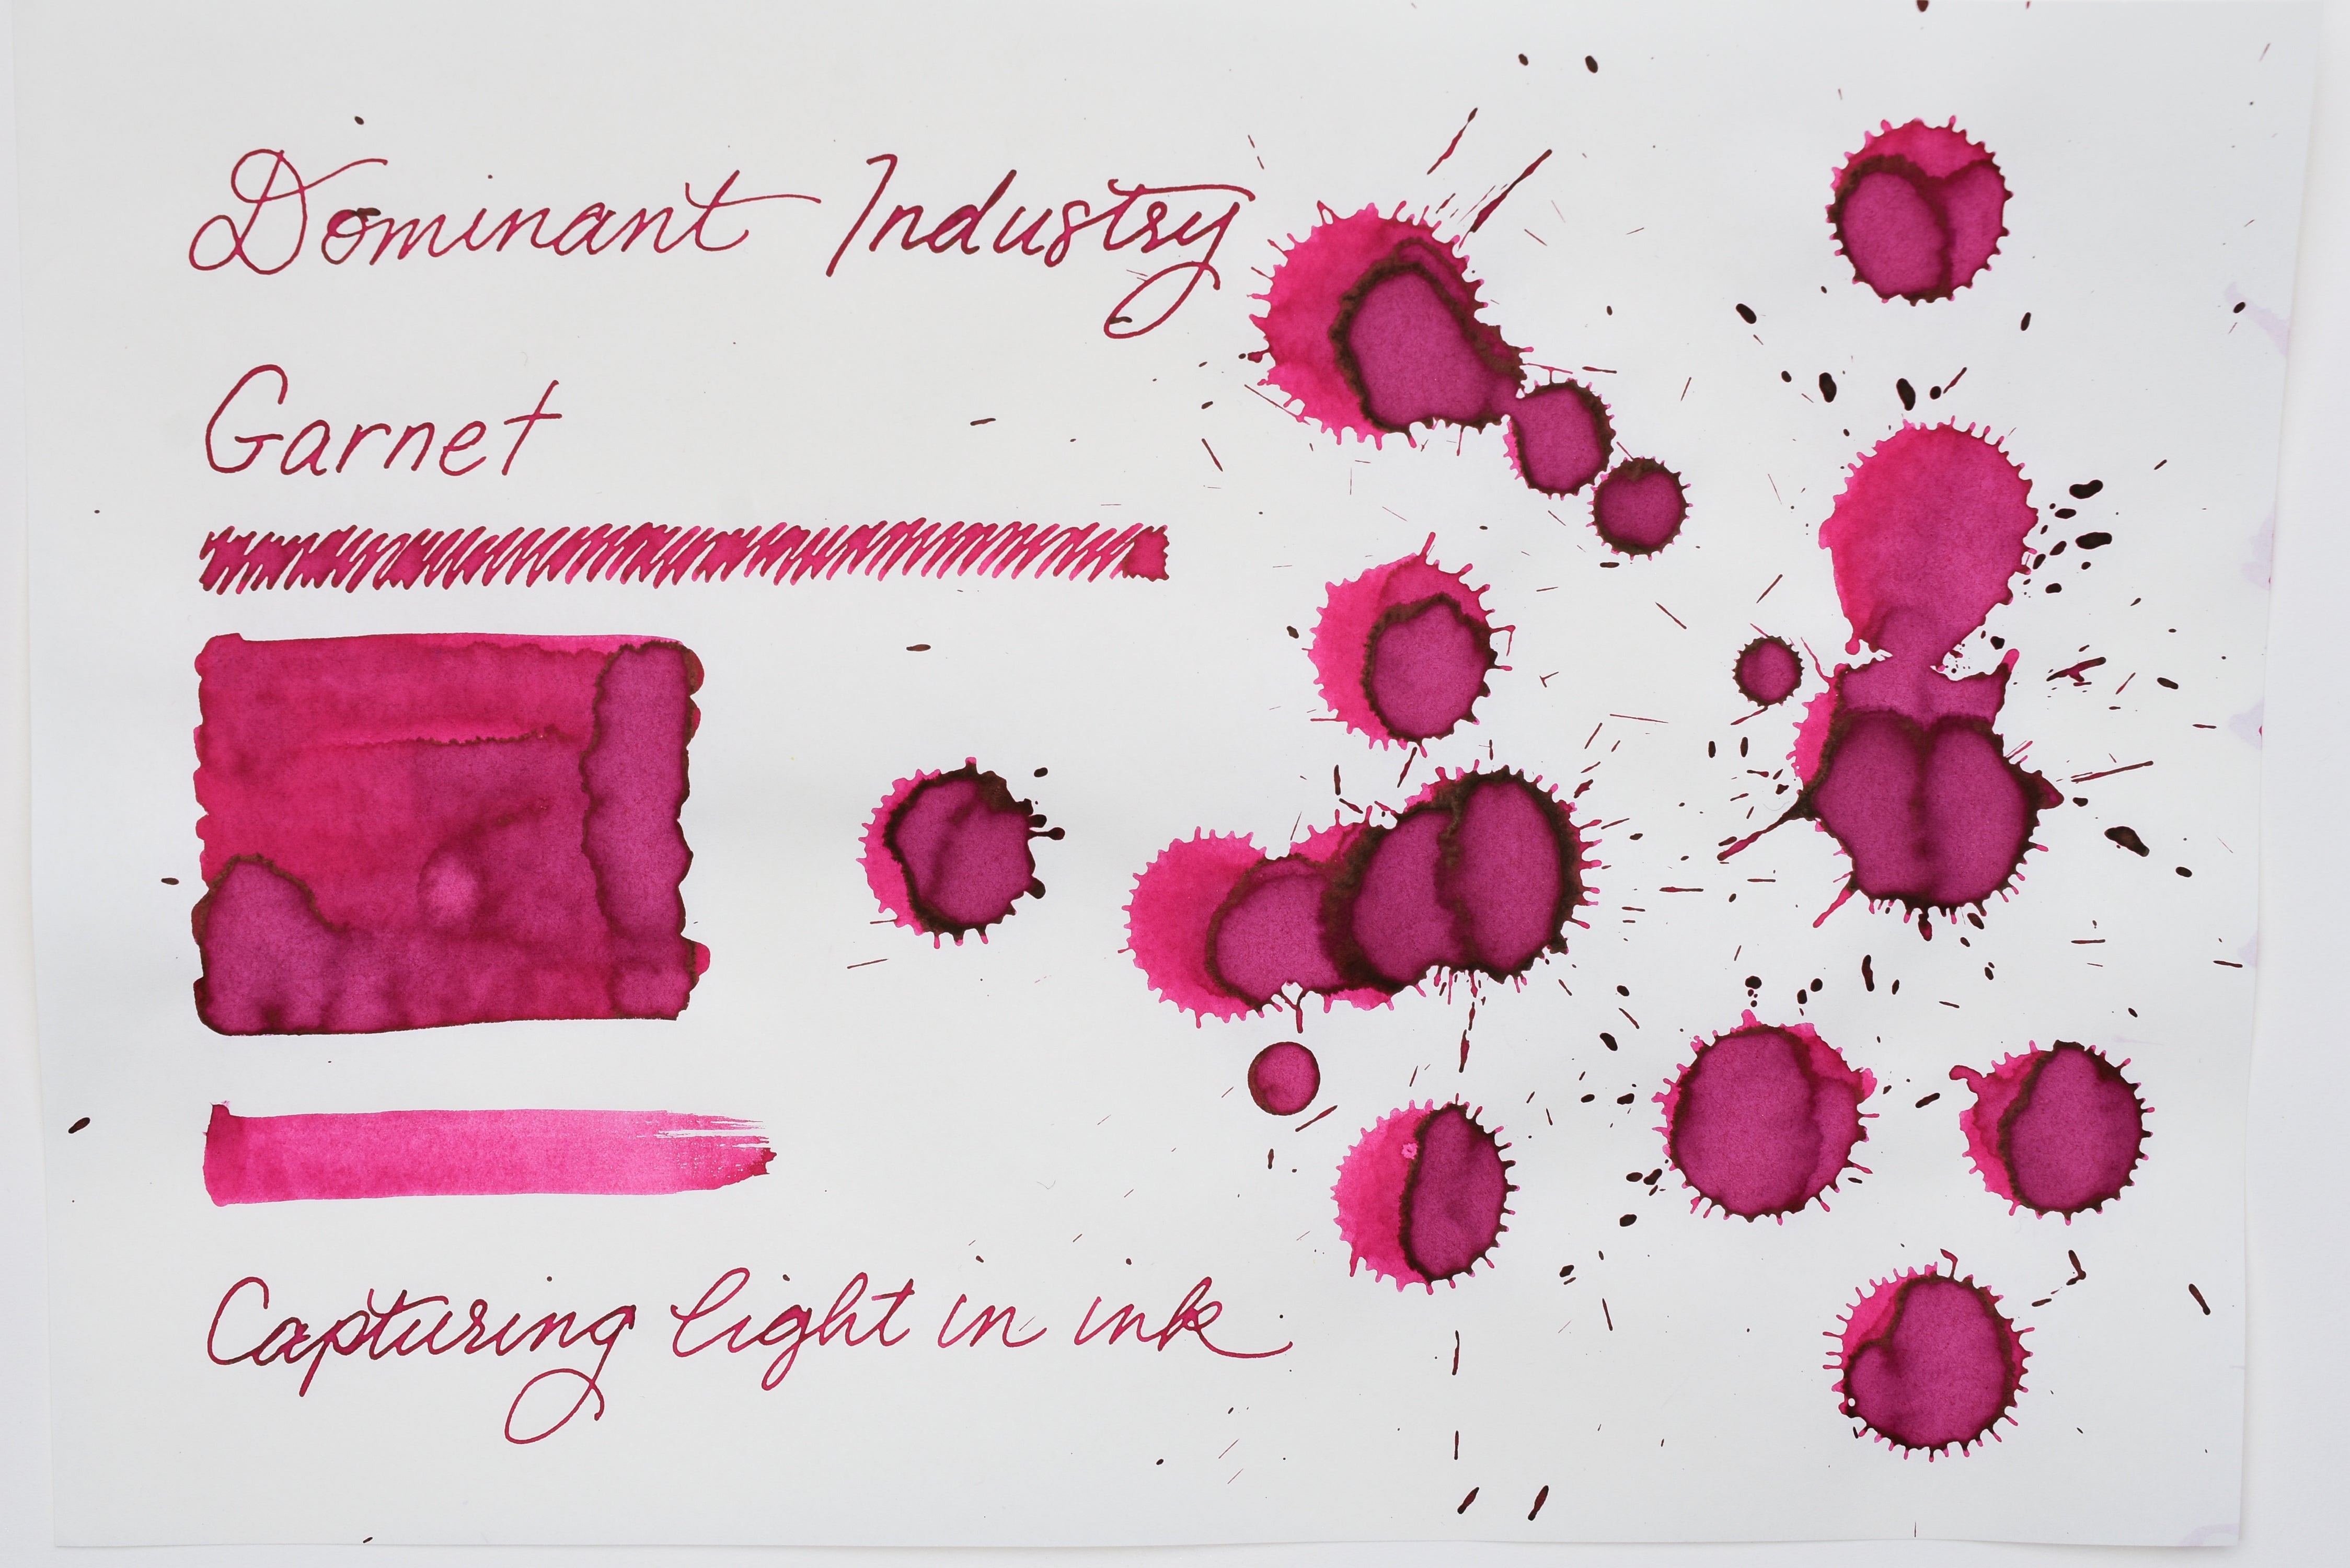 Dominant Industry
Garnet
Capturing light in ink